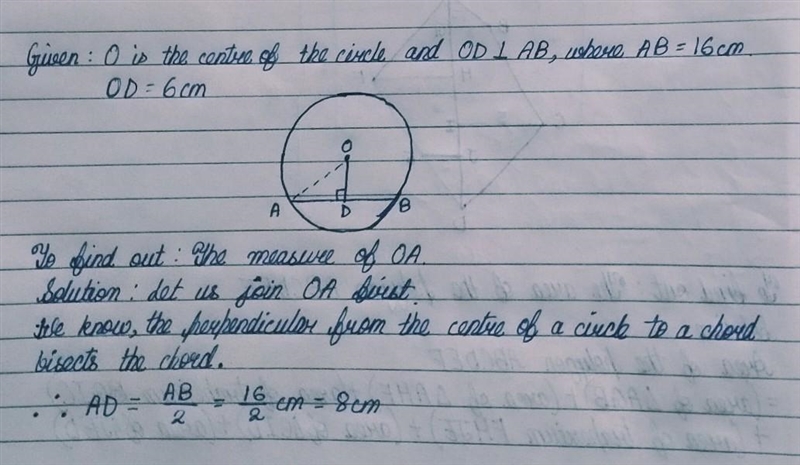 Given : O is the centre of the circle and OD ⊥ AB, where AB = 16cm
OD = 6cm
O
A D B
To find out : The measure of OA.
Solution : Let us join OA first.
We know, the perpendicular from the centre of a circle to a chord
bisects the chord.
∴ AD = AB/2 = 16/2 cm = 8cm